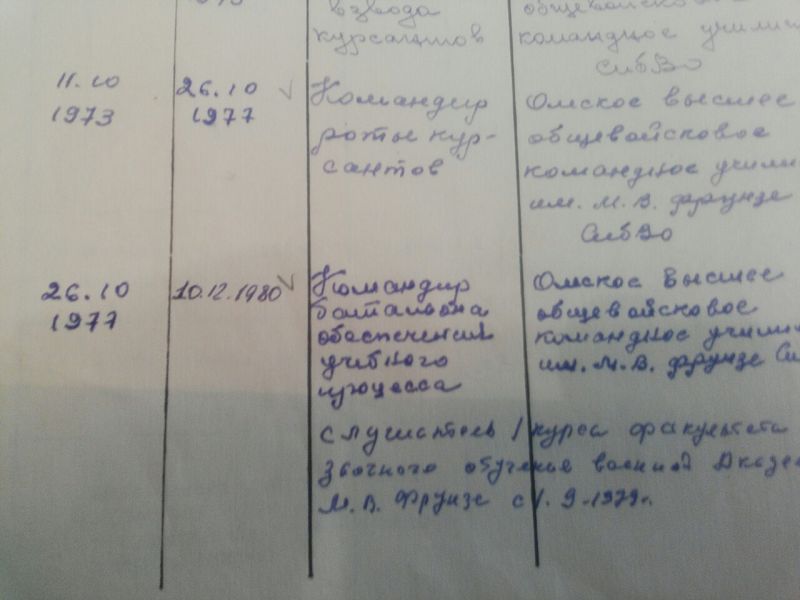 взвода
общевойсково
курсантов
командное училищ
СибВо
11.10
1973
26.10
1977
Командир
роты кур-
сантов
Омское высшее
общевойсковое
командное учили
им. М. В. Фрунзе
СибВо
26.10
1977
10.12.1980
Командир
батальона
обеспечения
учебного
процесса
Омское высшее
общевойсковое
командное учили
им. М. В. Фрунзе Си
слушатель 1 курса факультета
заочного обучения военной Акаде
М. В. Фрунзе с 1.9-1979г.